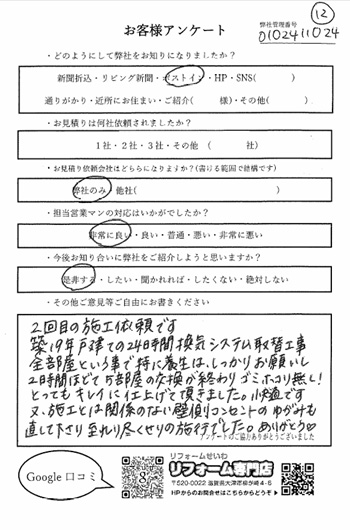 ⑫
弊社管理番号
0102411024
お客様アンケート
・どのようにして弊社をお知りになりましたか？
新聞折込・リビング新聞・ポストイン・HP・SNS( )
通りがかり・近所にお住まい・ご紹介( 様)・その他( )
・お見積りは何社依頼されましたか？
1社・2社・3社・その他 ( 社)
・お見積り依頼会社はどちらになりますか？(書ける範囲で結構です)
弊社のみ・他社( )
・担当営業マンの対応はいかがでしたか？
非常に良い・良い・普通・悪い・非常に悪い
・今後お知り合いに弊社をご紹介しようと思いますか？
是非する・したい・聞かれれば・したくない・絶対しない
・その他ご意見等ご自由にお書きください
2回目の施工依頼です
築19年戸建ての24時間換気システム取替工事
全部屋という事で特に養生は、しっかりお願いし
2時間ほどで5部屋の交換が終わりゴミホコリ無し!
とってもキレイに仕上げて頂きました。快適です
又、施工とは関係のない壁側コンセントのゆがみも
直して下さり至れり尽くせりの施行でした。ありがとう♡
アンケートのご協力ありがとうございました
Google口コミ
リフォームせいわ
リフォーム専門店
〒520-0022 滋賀県大津市柳が崎4-5
HPからのお問合せはこちらからどうぞ